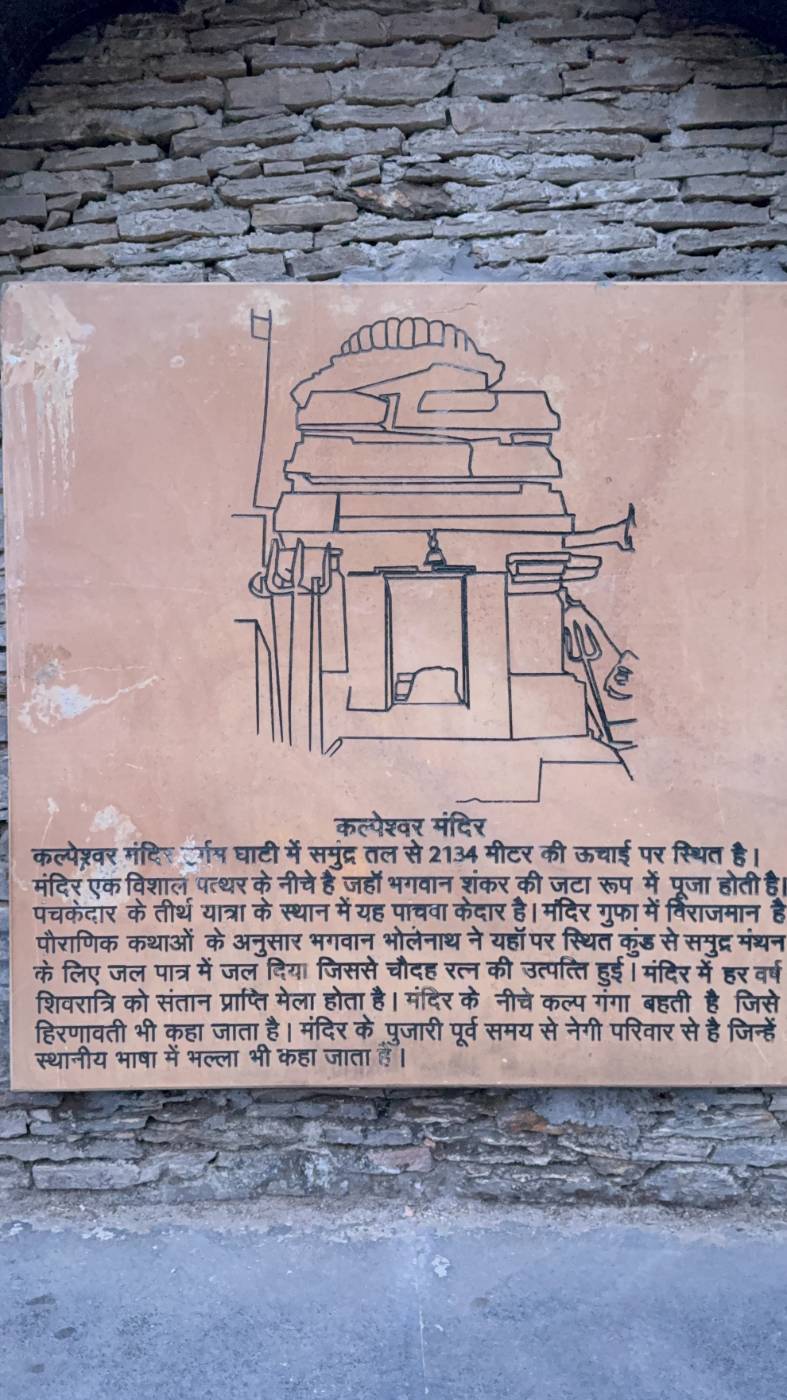 कल्पेश्वर मंदिर
कल्पेश्वर मंदिर उर्गम घाटी में समुंद्र तल से 2134 मीटर की ऊचाई पर स्थित है।
मंदिर एक विशाल पत्थर के नीचे है जहॉ भगवान शंकर की जटा रूप में पूजा होती है।
पंचकेदार के तीर्थ यात्रा के स्थान में यह पाचवा केदार है। मंदिर गुफा में विराजमान है
पौराणिक कथाओं के अनुसार भगवान भोलेनाथ ने यहॉ पर स्थित कुंड से समुद्र मंथन
के लिए जल पात्र में जल दिया जिससे चौदह रत्न की उत्पत्ति हुई। मंदिर में हर वर्ष
शिवरात्रि को संतान प्राप्ति मेला होता है। मंदिर के नीचे कल्प गंगा बहती है जिसे
हिरणावती भी कहा जाता है। मंदिर के पुजारी पूर्व समय से नेगी परिवार से है जिन्हें
स्थानीय भाषा में भल्ला भी कहा जाता है।